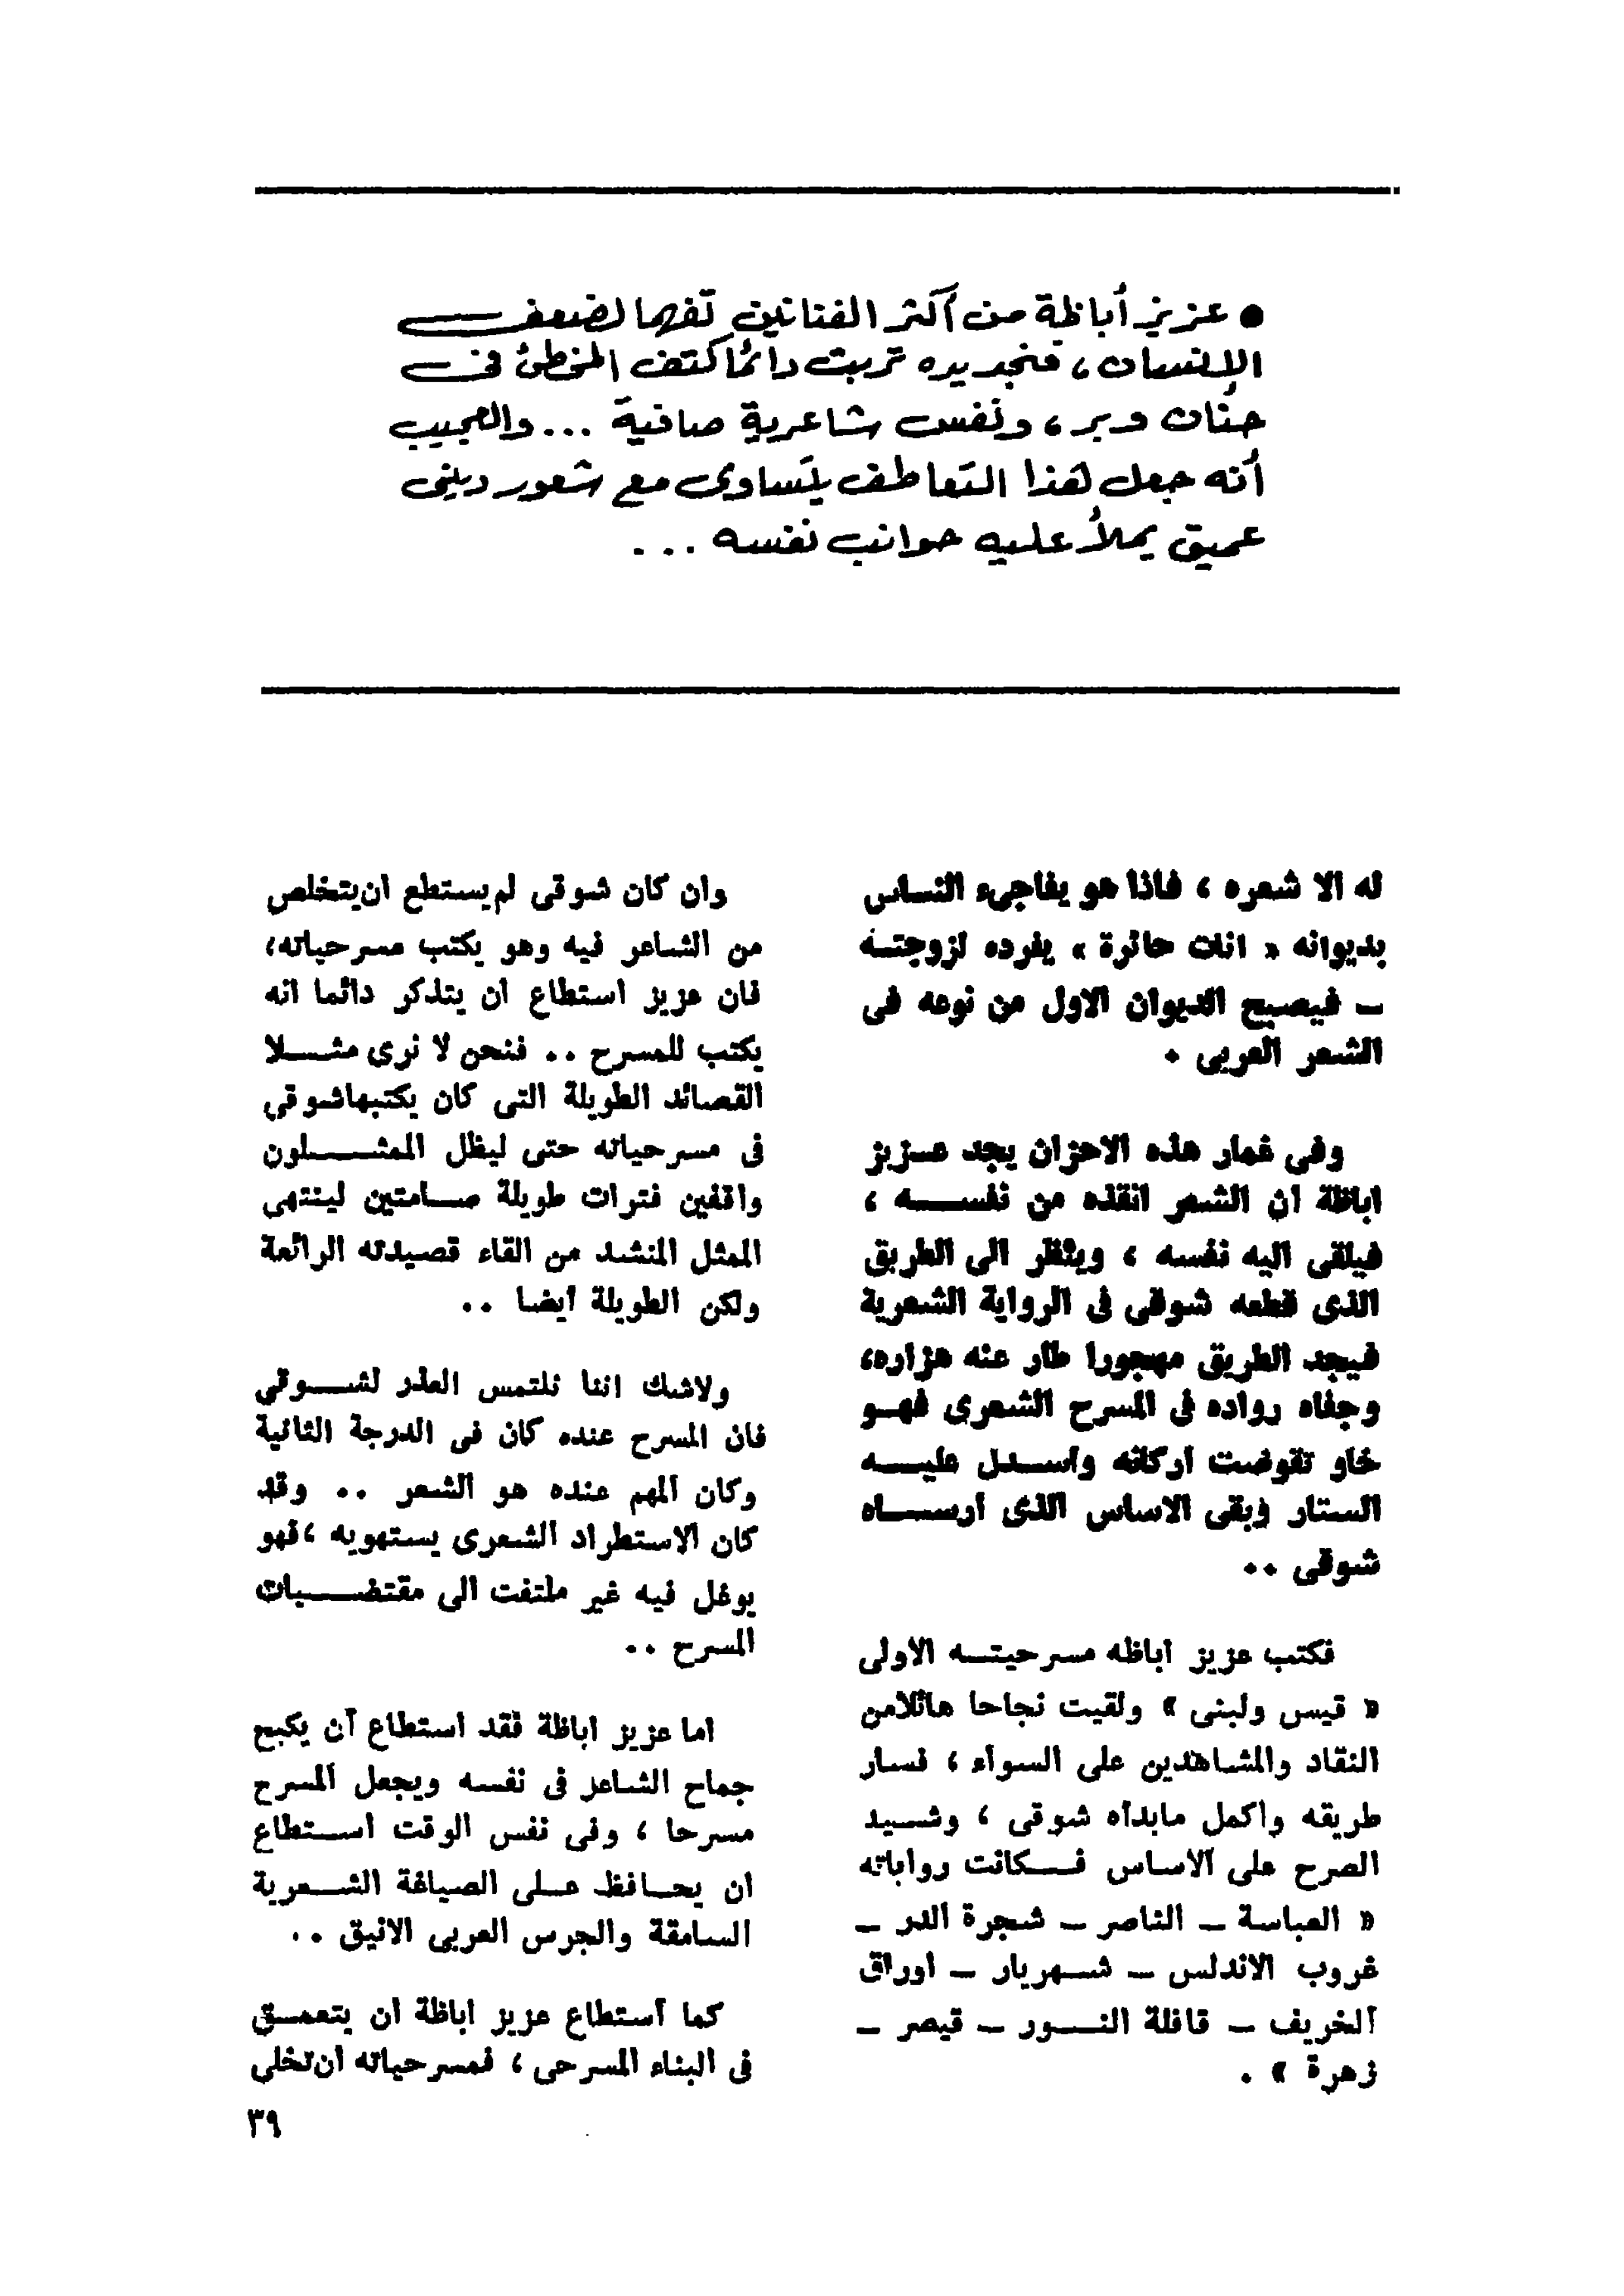 ● عزيز أباظة من أكثر الفنانين تفهما لضعف
الإنسان ، فنجد يده تربت دائما كتف المخطئ فى
حنان وبر ، ونفس شاعرية صافية ... والعجيب
أنه جعل هذا التعاطف يتساوى مع شعور دينى
عميق يملأ عليه جوانب نفسه ...
له الا شعره ، فاذا هو يفاجىء النساس
بديوانه « انات حائرة » يفرده لزوجته
ــ فيصبح الديوان الاول من نوعه فى
الشعر العربى .
وفى غمار هذه الاحزان يجد عزيز
اباظة ان الشعر انقذه من نفسه ،
فيلقى اليه نفسه ، وينظر الى الطريق
الذى قطعه شوقى فى الرواية الشعرية
فيجد الطريق مهجورا طار عنه هزاره،
وجفاه رواده فى المسرح الشعرى فهو
خاو تقوضت اركانه واسدل عليه
الستار وبقى الاساس الذى ارساه
شوقى ..
فكتب عزيز اباظه مسرحيته الاولى
« قيس ولبنى » ولقيت نجاحا هائلا من
النقاد والمشاهدين على السواء ، فسار
طريقه واكمل مابدأه شوقى ، وشيد
الصرح على الاساس فكانت رواياته
« العباسة ــ الناصر ــ شجرة الدر ــ
غروب الاندلس ــ شهريار ــ اوراق
الخريف ــ قافلة النور ــ قيصر ــ
زهرة » .
وان كان شوقى لم يستطع ان يتخلص
من الشاعر فيه وهو يكتب مسرحياته،
فان عزيز استطاع ان يتذكر دائما انه
يكتب للمسرح .. فنحن لا نرى مثلا
القصائد الطويلة التى كان يكتبهاشوقى
فى مسرحياته حتى ليظل الممثلون
واقفين فترات طويلة صامتين لينتهى
الممثل المنشد من القاء قصيدته الرائعة
ولكن الطويلة ايضا ..
ولاشك اننا نلتمس العذر لشوقى
فان المسرح عنده كان فى الدرجة الثانية
وكان المهم عنده هو الشعر .. وقد
كان الاستطراد الشعرى يستهويه ، فهو
يوغل فيه غير ملتفت الى مقتضيات
المسرح ..
اما عزيز اباظة فقد استطاع أن يكبح
جماح الشاعر فى نفسه ويجعل المسرح
مسرحا ، وفى نفس الوقت استطاع
ان يحافظ على الصياغة الشعرية
السامقة والجرس العربى الانيق ..
كما استطاع عزيز اباظة ان يتعمق
فى البناء المسرحى ، فمسرحياته ان تخلى
٣٩